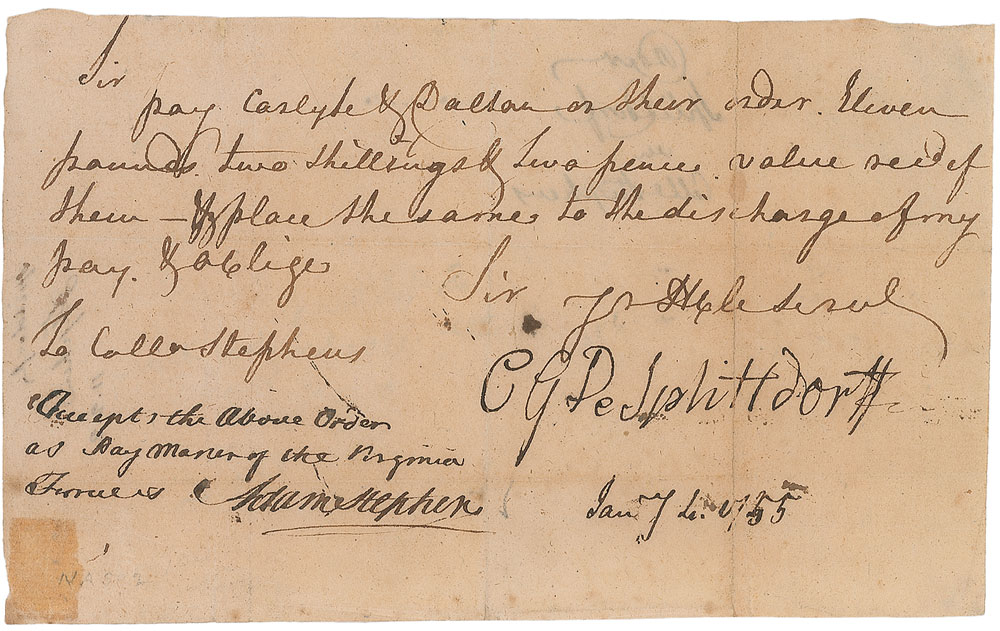 Sir
pay Carlyle & Dalton or their order Eleven
pounds two shillings & two pence value recd of
them – & place the same to the discharge of my
pay. & oblige
Sir yr Hble Servt
To Collo Stephens
C G De Splittdorff
Accepts the Above Order
as Pay Master of the Virginia
Forces Adam Stephen
Jany 4. 1755
NAS 2